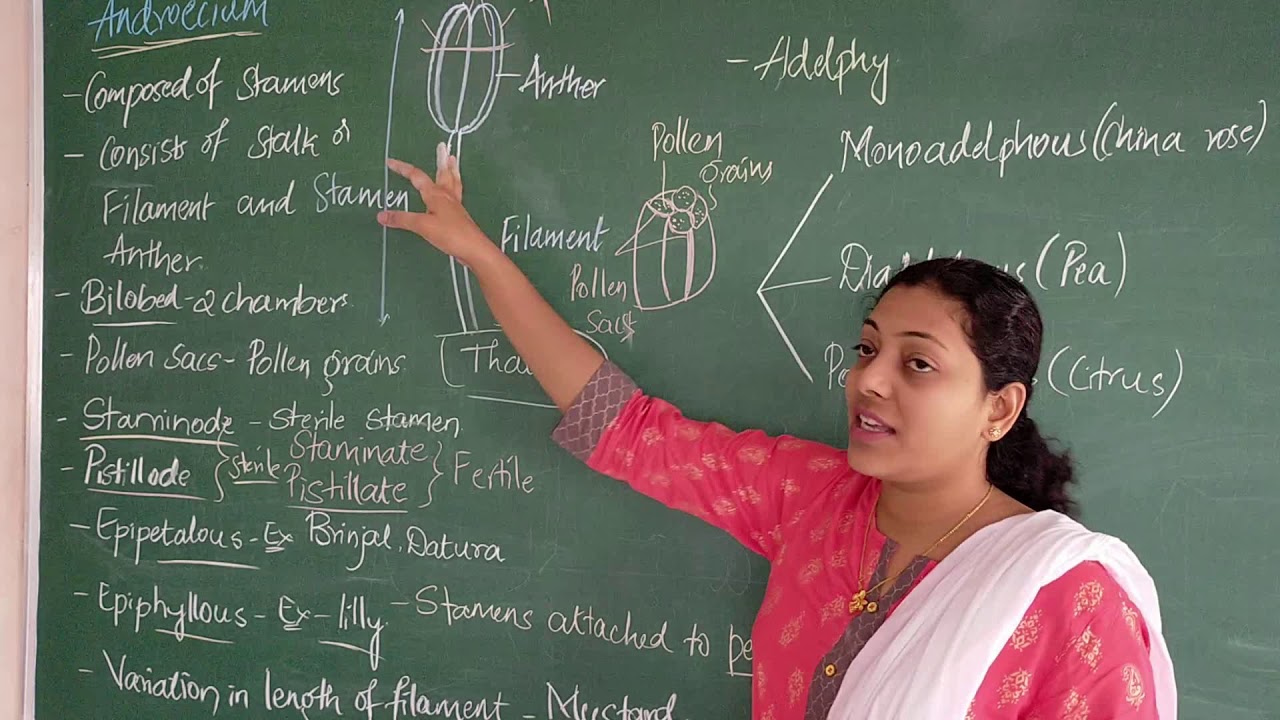 Androecium
- Composed of Stamens
- Consists of Stalk or
Filament and Stamen
Anther.
- Bilobed - 2 chambers.
- Pollen Sacs - Pollen grains.
- Staminode - Sterile Stamen.
- Pistillode } Sterile Staminate } Fertile
Pistillate
- Epipetalous - Ex Brinjal, Datura
- Epiphyllous - Ex - lilly - Stamens attached to
- Variation in length of filament - Mustard
Anther
Filament
Pollen
grains
Pollen
Sacs
- Adelphy
Monoadelphous (China rose)
(Pea)
(Citrus)